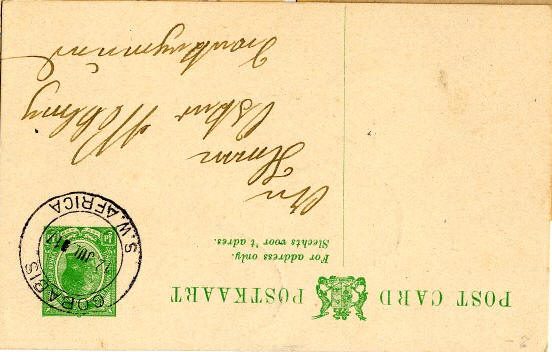 POST CARD POSTKAART
For address only.
Slechts voor 't adres.
GOBABIS
JUL
S.W. AFRICA
An
Herrn
Oskar